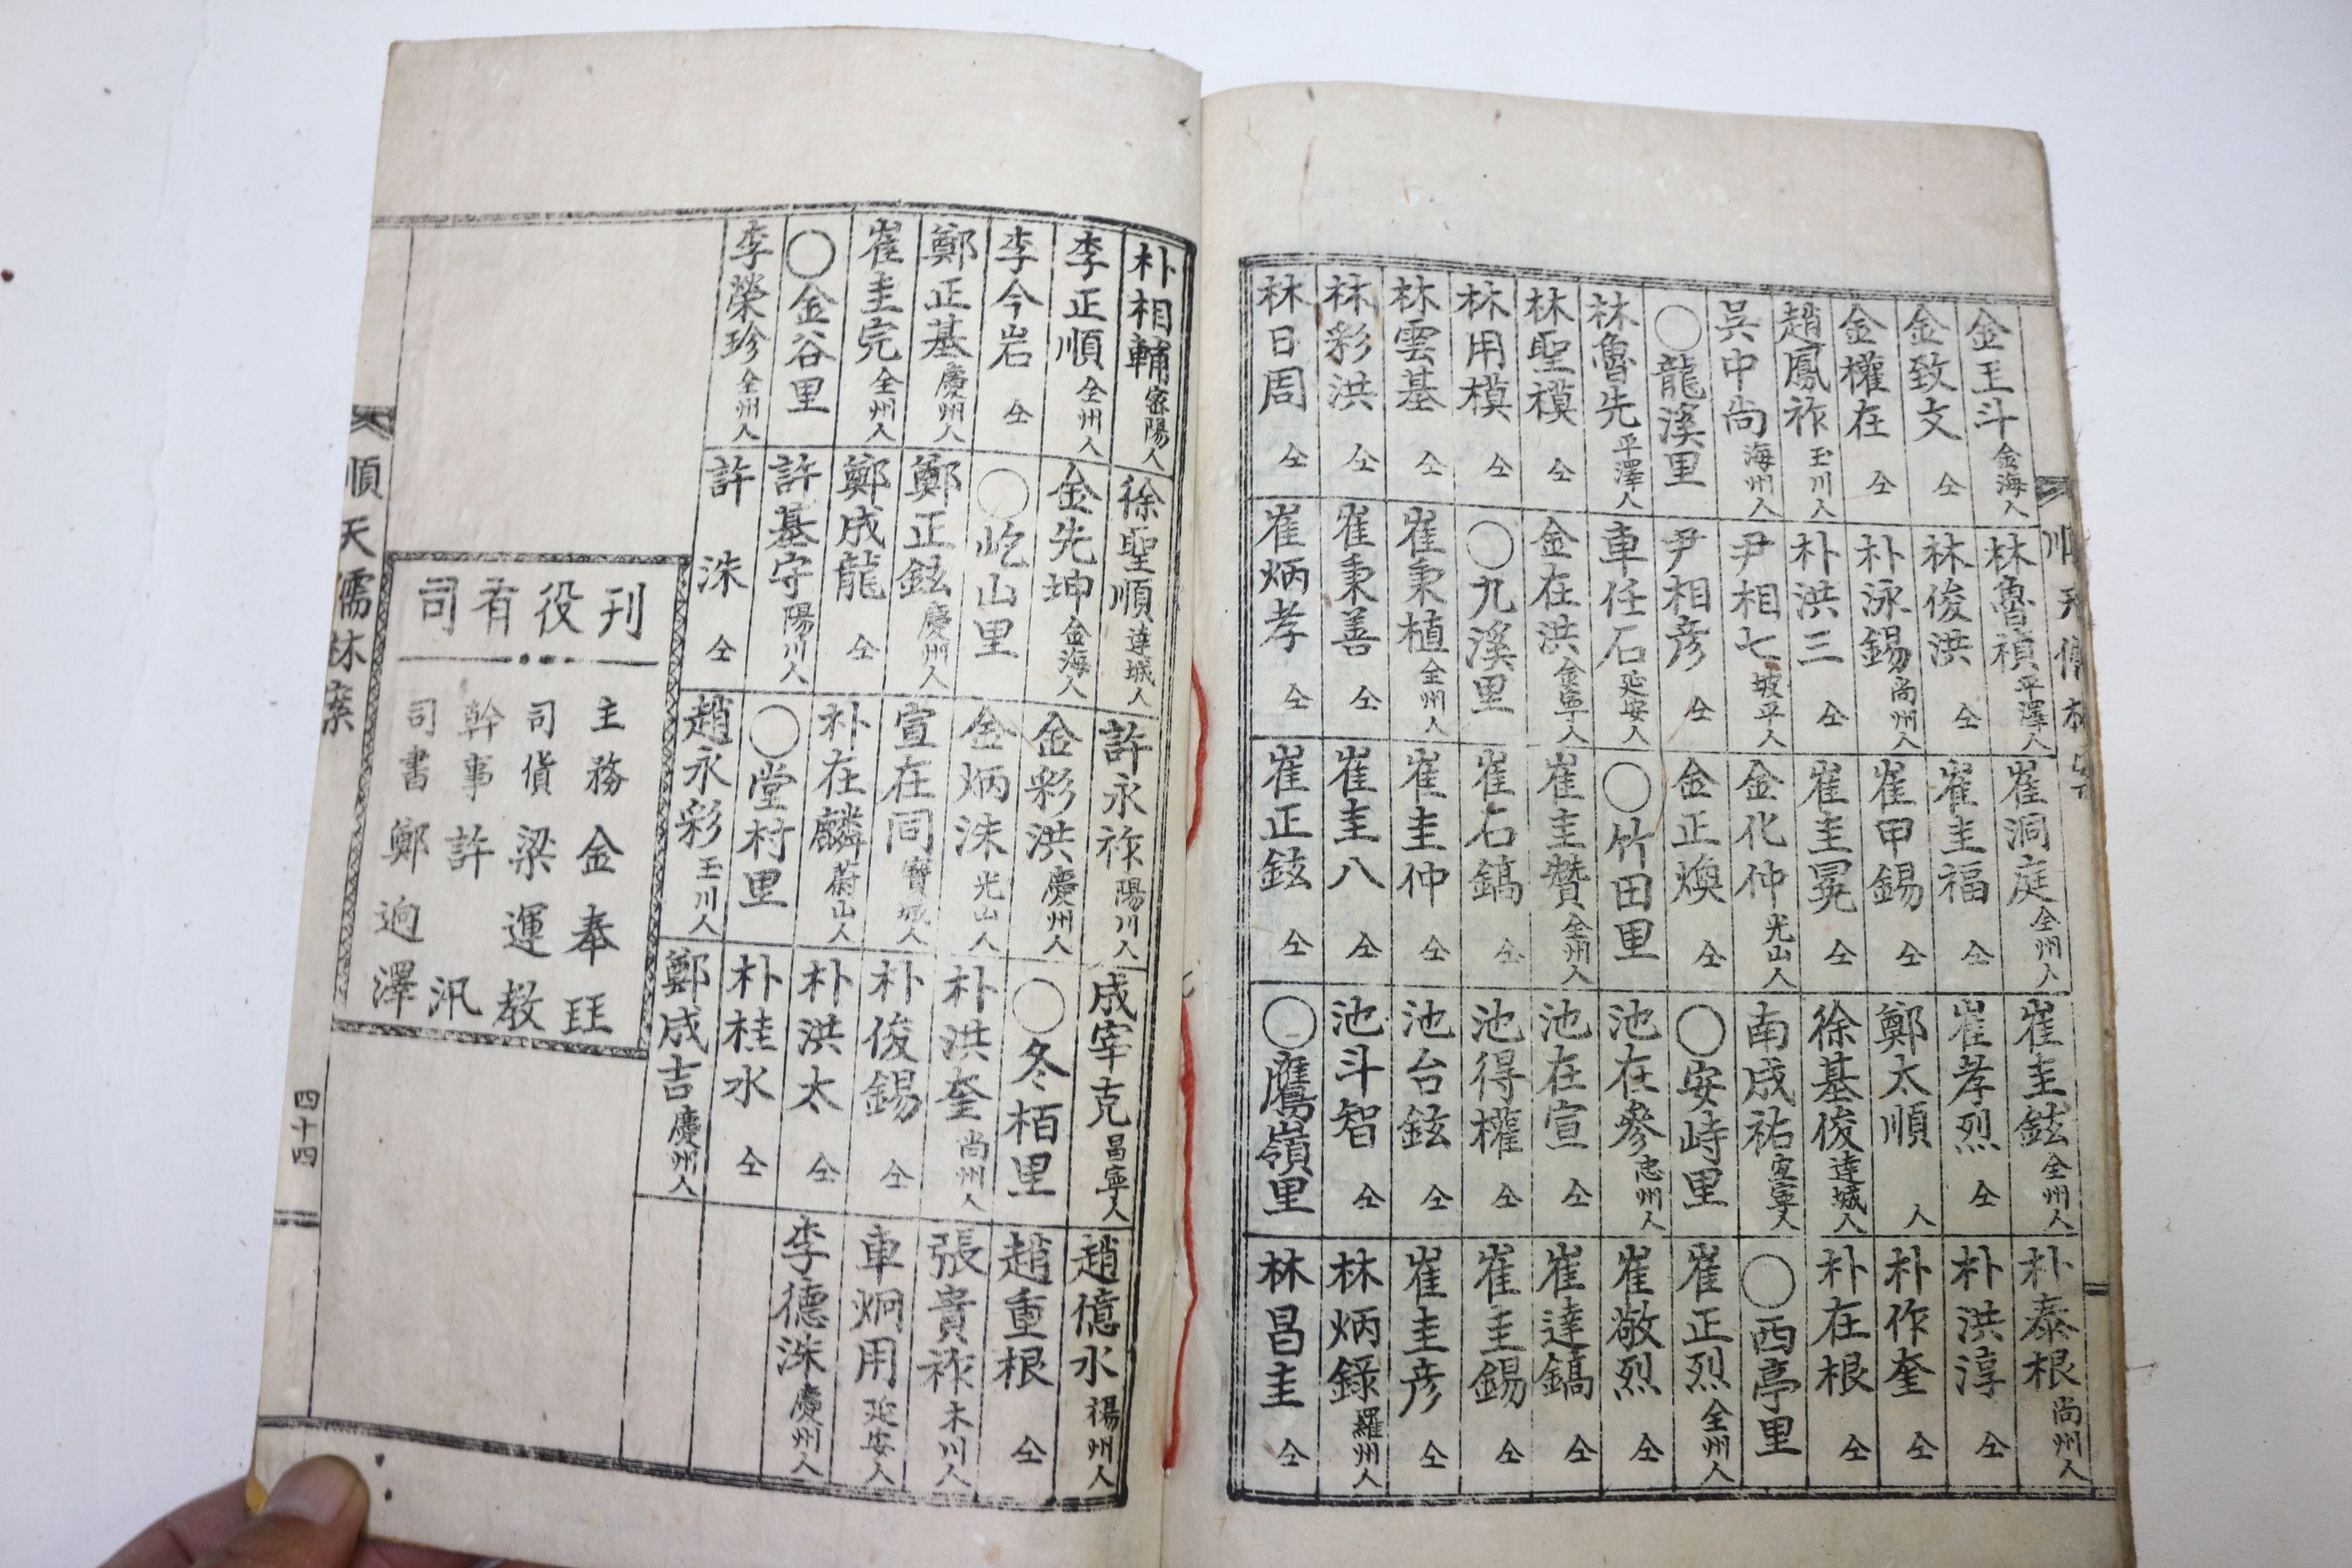 順天儒林案
金王斗 金海人
金致文 仝
金權在 仝
趙鳳祚 玉川人
吳中尚 海州人
○龍溪里
林魯先 平澤人
林聖模 仝
林用模 仝
林雲基 仝
林彩洪 仝
林日周 仝
林魯禎 平澤人
林俊洪 仝
朴泳錫 尚州人
朴洪三 仝
尹相七 坡平人
尹相彦 仝
車任石 延安人
金在洪 金寧人
○九溪里
崔秉植 全州人
崔秉善 仝
崔炳孝 仝
崔洞庭 全州人
崔圭福 仝
崔甲錫 仝
崔圭冕 仝
金化仲 光山人
金正煥 仝
○竹田里
崔圭贊 全州人
崔石鎬 仝
崔圭仲 仝
崔圭八 仝
崔正鉉 仝
崔圭鉉 全州人
崔孝烈 仝
鄭太順 人
徐基俊 達城人
南成祐 宜寧人
○安峙里
池在參 忠州人
池在宣 仝
池得權 仝
池台鉉 仝
池斗智 仝
○鷹嶺里
朴泰根 尚州人
朴洪淳 仝
朴作奎 仝
朴在根 仝
○西亭里
崔正烈 全州人
崔敬烈 仝
崔達鎬 仝
崔圭錫 仝
崔圭彦 仝
林炳錄 羅州人
林昌圭 仝
朴相輔 密陽人
李正順 全州人
李今岩 仝
鄭正基 慶州人
崔圭完 全州人
○金谷里
李榮珍 全州人
徐聖順 達城人
金先坤 金海人
○屹山里
鄭正鉉 慶州人
鄭成龍 仝
許基守 陽川人
許洙 仝
許永祿 陽川人
金彩洪 慶州人
金炳洙 光山人
宣在同 寶城人
朴在麟 蔚山人
○堂村里
趙永彩 玉川人
成宰克 昌寧人
○冬栢里
朴洪奎 尚州人
朴俊錫 仝
朴洪太 仝
朴桂水 仝
鄭成吉 慶州人
趙億水 楊州人
趙重根 仝
張貴祚 木川人
車炯用 延安人
李德洙 慶州人
刊役有司
主務 金奉玨
司貨 梁運敎
幹事 許汛
司書 鄭逈澤
順天儒林案
四十四